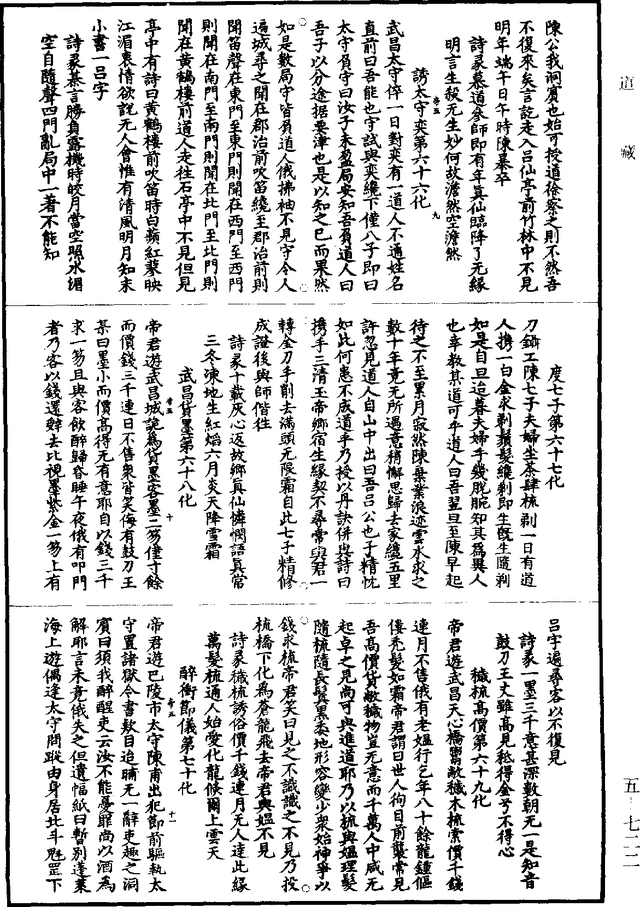 道藏
陳公我洞賓也始可授道徐察之則不然吾
不復來矣言訖走入呂仙亭前竹林中不見
明年端午日午時陳暴卒
詩彖慕道參師即有年真仙臨降了无緣
明言生殺无生妙何故澹然空澹然
誘太守奕第六十六化
武昌太守倅一日對奕有一道人不通姓名
直前曰吾能也守試與奕纔下僅八子即曰
太守負守曰汝子未盈局安知吾負道人曰
吾子以分途据要津也是以知之已而果然
如是數局守皆負道人俄拂袖不見守令人
遍城尋之聞在郡治前吹笛纔至郡治前則
聞笛聲在東門至東門則聞在西門至西門
則聞在南門至南門則聞在北門至北門則
聞在黃鶴樓前道人走往石亭中不見但見
亭中有詩曰黃鶴樓前吹笛時白蘋紅蓼映
江湄衷情欲說无人會惟有清風明月知末
小書一呂字
詩彖棊言勝負露機時皎月當空照水湄
空自隨聲四門亂局中一著不能知
度七子第六十七化
刀鑷工陳七子夫婦坐茶肆梳剃一日有道
人携一白金求剃鬚髮纔剃即生旣生隨剃
如是自旦迨暮夫婦手幾脫腕知其爲異人
也幸敎某道可乎道人曰吾翌旦至陳早起
待之不至累月寂然陳棄業浪迹雲水求之
數十年竟无所遇意稍懈思歸去家纔五里
許忽見道人自山中出曰吾呂公也子精忱
如此何患不成道乎乃授以丹訣併與詩曰
携手三清玉帝鄉宿生緣契不尋常與君一
轉金刀手削去滿頭无限霜自此七子精修
成證後與師偕往
詩彖十載灰心返故鄉真仙憐憫語真常
三冬凍地生紅焰六月炎天降雪霜
武昌貨墨第六十八化
帝君遊武昌城詭爲貨墨客墨一笏僅寸餘
而價錢三千連日不售衆皆笑侮有鼓刀王
某曰墨小而價髙得无有意耶自以錢三千
求一笏且與客飲醉歸昏睡午夜俄有叩門
者乃客以錢還辭去比視墨紫金一笏上有
呂字遍尋客以不復見
詩彖一墨三千意甚深數朝无一是知音
鼓刀王丈雖髙見秪得金兮不得心
穢梳髙價第六十九化
帝君遊武昌天心橋鬻敝穢木梳索價千錢
連月不售俄有老媪行乞年八十餘龍鍾傴
僂禿髮如霜帝君謂曰世人徇目前襲常見
吾髙價貨敝穢物豈无意而千萬人中咸无
起卓之見尚可與進道耶乃以梳與媪理髮
隨梳隨長鬒黑委地形容變少衆始神爭以
錢求梳帝君笑曰見之不識識之不見乃投
梳橋下化爲蒼龍飛去帝君與媪不見
詩彖穢梳誘俗價千錢連月无人達此緣
萬髮梳通人始愛化龍倏爾上雲天
醉衝節儀第七十化
帝君遊巴陵市太守陳甫出犯節前驅執太
守置諸獄令書欵自迨晡无一辭吏趣之洞
賓曰須我醉醒吏云汝不能憂罪尚以酒爲
解耶言未竟俄失之但遺幅紙曰暫別蓬萊
海上遊偶逢太守問蹤由身居北斗魁罡下
五-七二二